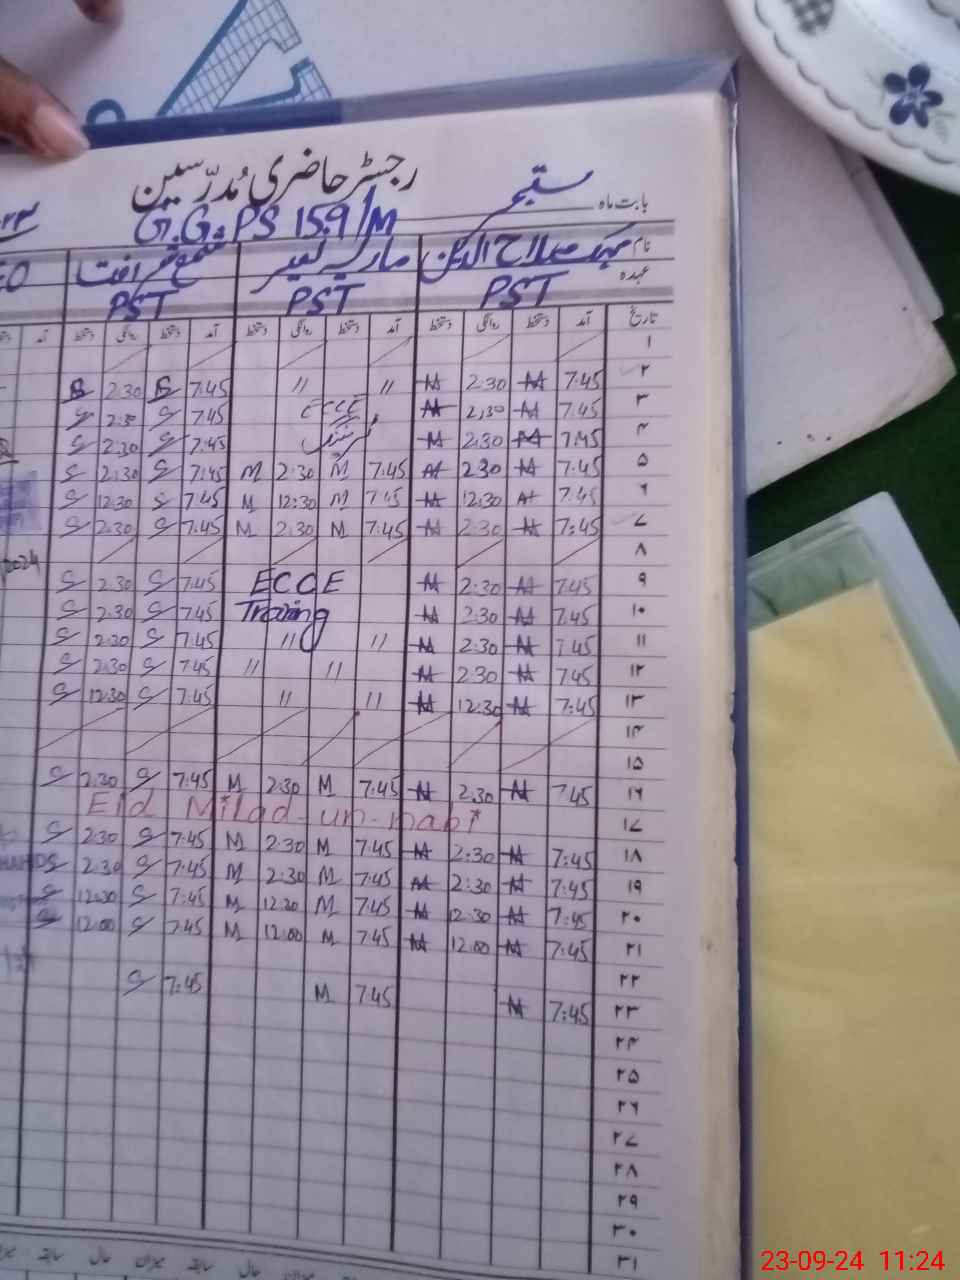 رجسٹر حاضری مُدرّسین
بابت ماہ ستمبر
G.G.PS 159/M
نام مہک صلاح الدین ماریہ
عہدہ PST PST PST
تاریخ آمد دستخط روانگی دستخط آمد دستخط روانگی دستخط آمد دستخط روانگی دستخط آمد
۱
۲ 7:45 M 2:30 M 7:45 2:30 " "
۳ 7:45 M 2:30 M ECCE 7:45 S 2:30 S
۴ 7:45 M 2:30 M ٹریننگ 7:45 S 2:30 S
۵ 7:45 M 2:30 M 7:45 M 2:30 M 7:45 S 2:30 S
۶ 7:45 M 12:30 M 7:45 M 12:30 M 7:45 S 12:30 S
۷ 7:45 M 2:30 M 7:45 M 2:30 M 7:45 S 2:30 S
۸
۹ 7:45 M 2:30 M ECCE 7:45 S 2:30 S
۱۰ 7:45 M 2:30 M Training 7:45 S 2:30 S
۱۱ 7:45 M 2:30 M " " 7:45 S 2:30 S
۱۲ 7:45 M 2:30 M " " 7:45 S 2:30 S
۱۳ 7:45 M 12:30 M " " 7:45 S 12:30 S
۱۴
۱۵
۱۶ 7:45 M 2:30 M 7:45 M 2:30 M 7:45 S 2:30 S
۱۷ Eid Milad-un-nabi
۱۸ 7:45 M 2:30 M 7:45 M 2:30 M 7:45 S 2:30 S
۱۹ 7:45 M 2:30 M 7:45 M 2:30 M 7:45 S 2:30 S
۲۰ 7:45 M 12:30 M 7:45 M 12:30 M 7:45 S 12:30 S
۲۱ 7:45 M 12:00 M 7:45 M 12:00 M 7:45 S 12:00 S
۲۲
۲۳ 7:45 M 7:45 M 7:45 S
۲۴
۲۵
۲۶
۲۷
۲۸
۲۹
۳۰
۳۱
میزان حال سابقہ میزان حال سابقہ
23-09-24 11:24